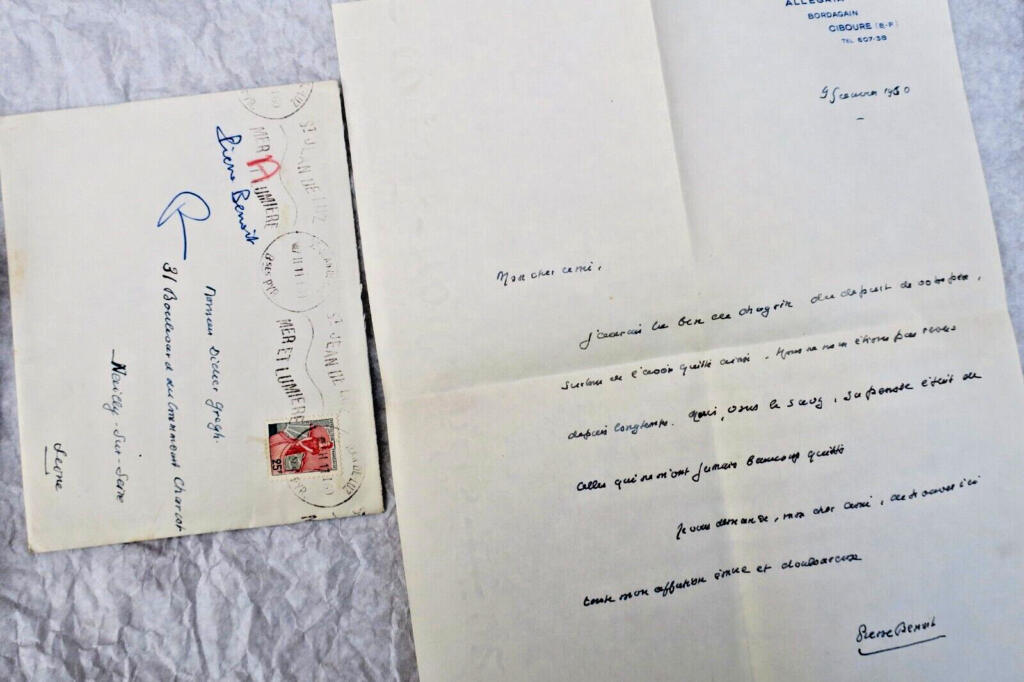 Pierre Benoit
Monsieur Didier Gregh.
31 Boulevard du Commandant Charcot
Neuilly-Sur-Seine
Seine
ST JEAN DE LUZ
MER ET LUMIERE
A
ST JEAN DE LUZ
MER ET LUMIERE
25F
ALLEGRIA
BORDAGAIN
CIBOURE (B-P)
TEL 607-38
9 Janvier 1960
Mon cher ami,
J'aurai eu bien du chagrin du départ de votre père,
surtout de l'avoir quitté ainsi. Nous ne nous étions pas revus
depuis longtemps. Mais, vous le savez, sa pensée était de
celles qui ne m'ont jamais beaucoup quitté
Je vous demande, mon cher ami, de trouver ici
toute mon affection émue et douloureuse
Pierre Benoit